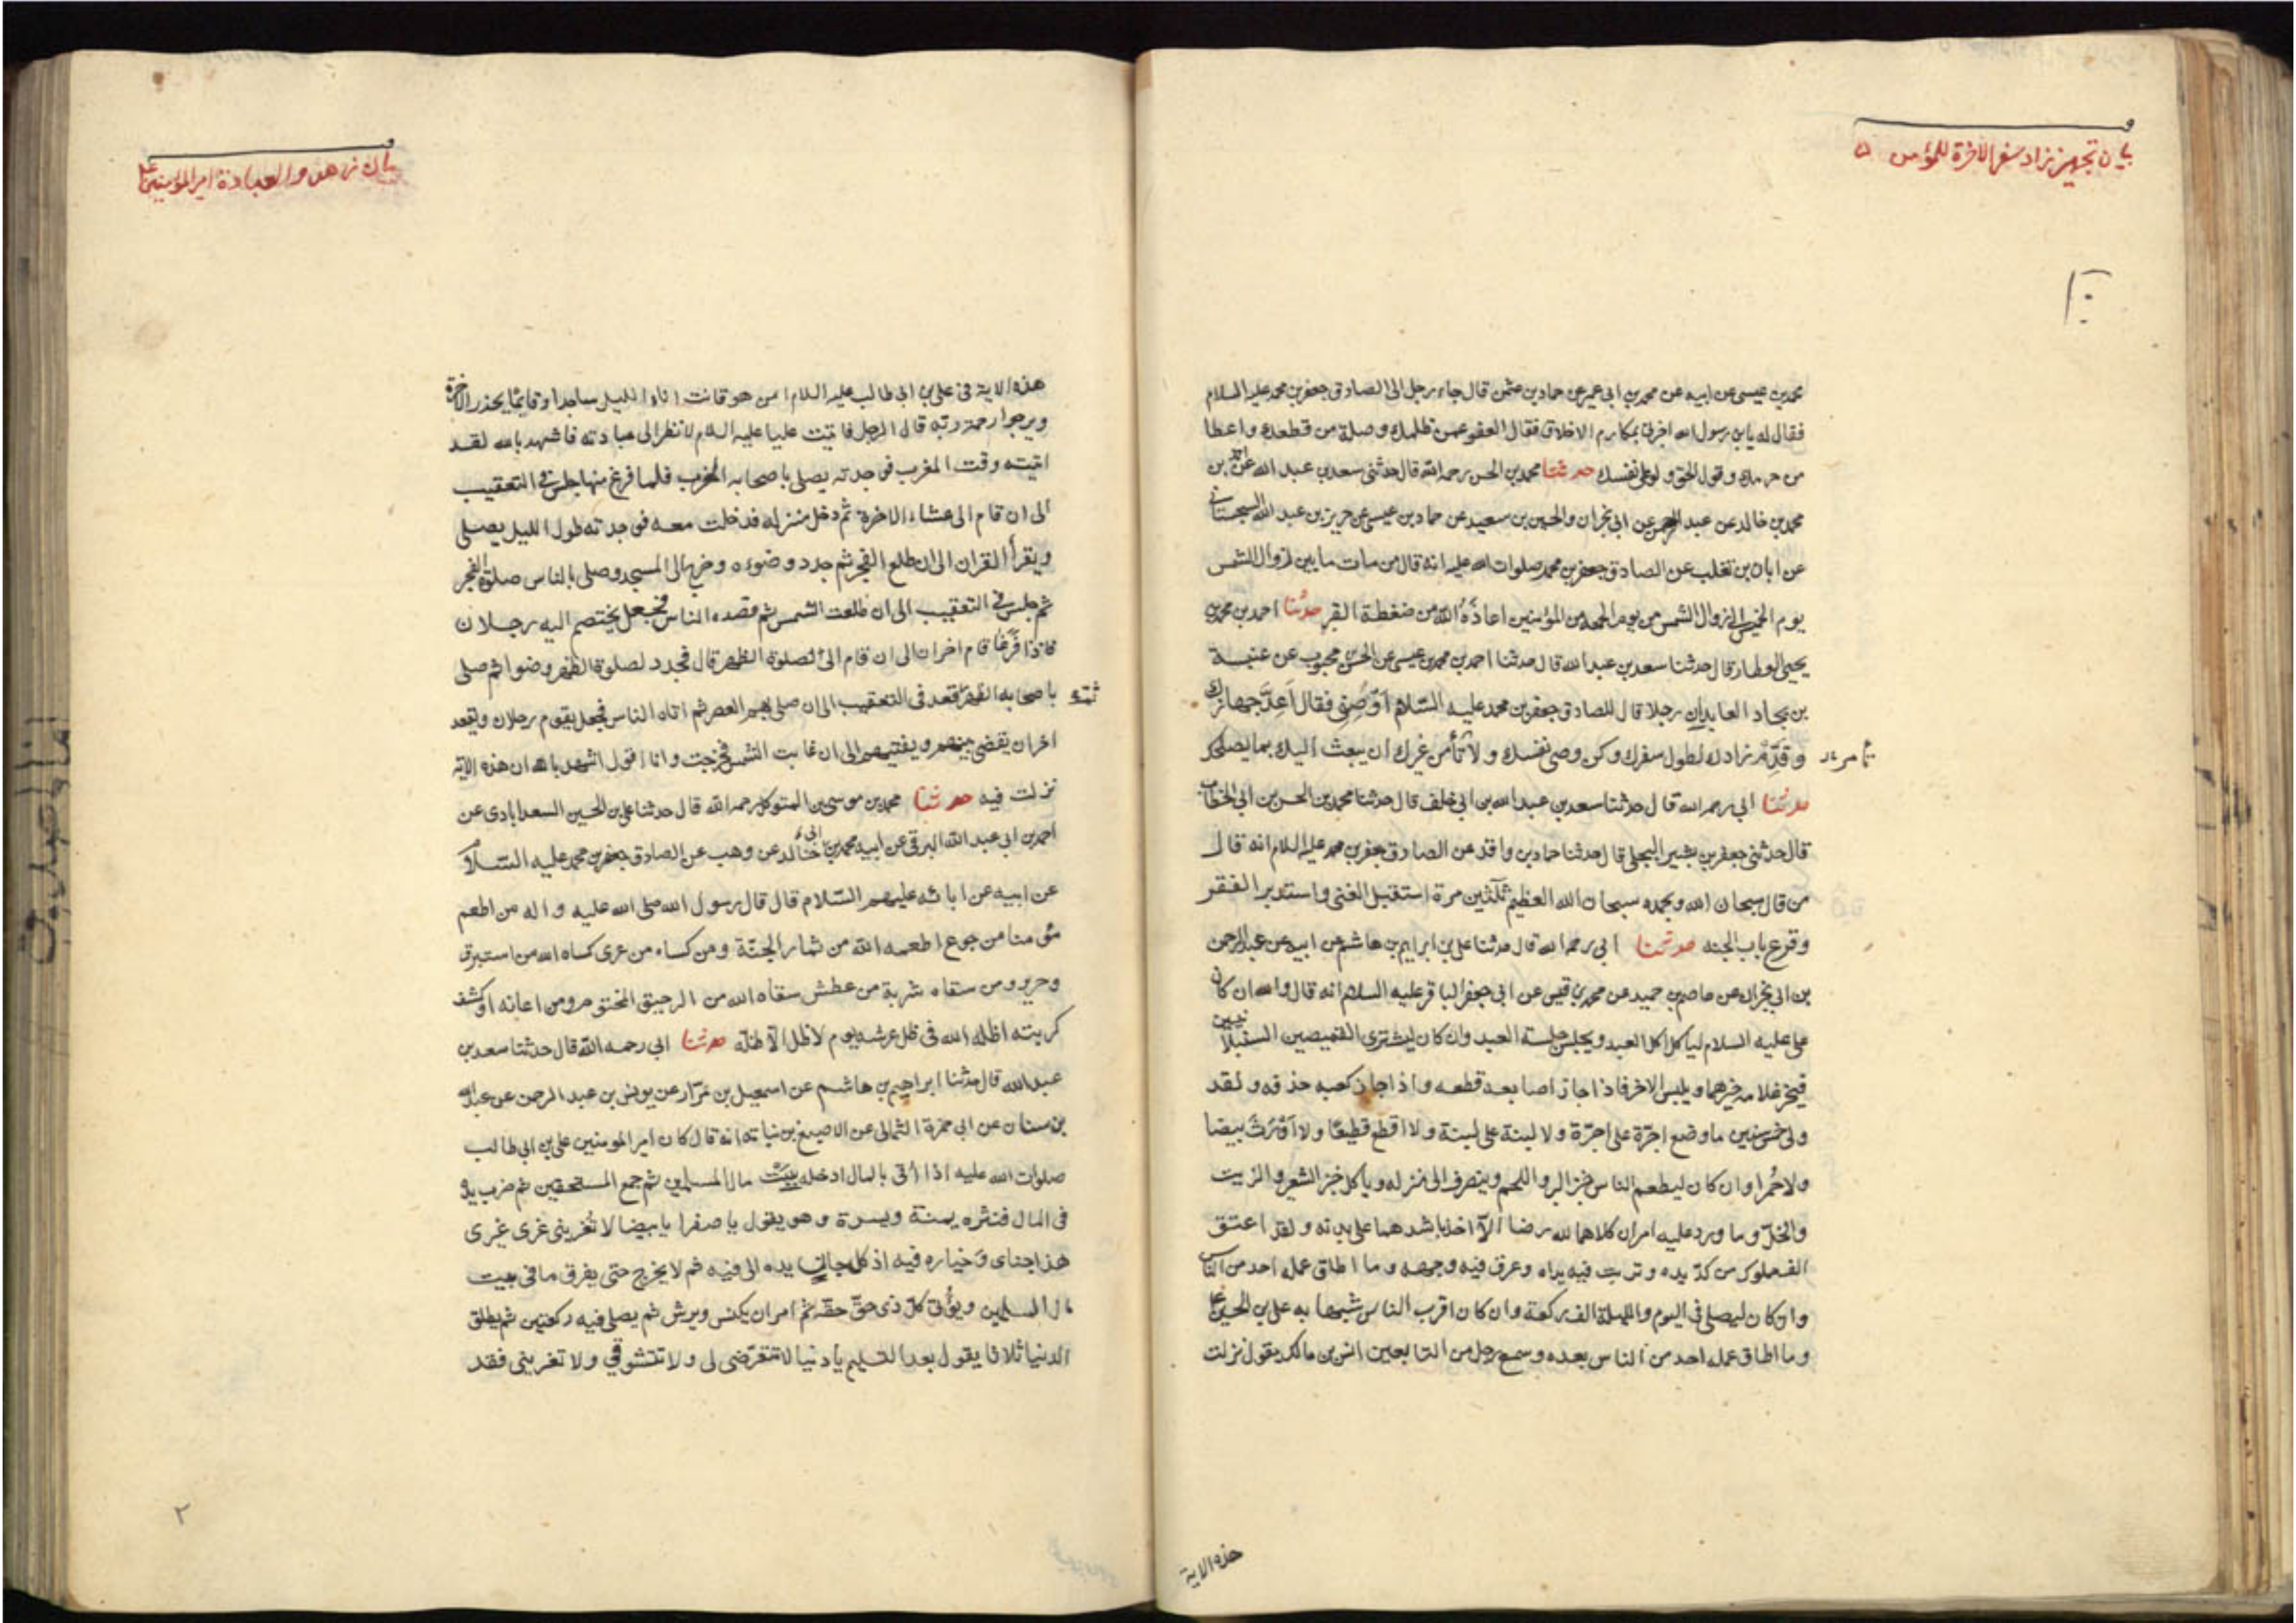 بيان تجهيز زاد سفر الاخرة للمؤمن
محمد بن عيسى عن ابيه عن محمد بن ابي عمير عن حماد بن عثمن قال جاء رجل الى الصادق جعفر بن محمد عليه السلام
فقال له يابن رسول الله اخبرني بمكارم الاخلاق فقال العفو عمن ظلمك وصلة من قطعك واعطا
من حرمك وقول الحق ولو على نفسك حدثنا محمد بن الحسن رحمه الله قال حدثني سعد بن عبد الله عن احمد بن
محمد بن خالد عن عبد الرحمن عن ابي نجران والحسين بن سعيد عن حماد بن عيسى عن حريز بن عبد الله السجستاني
عن ابان بن تغلب عن الصادق جعفر بن محمد صلوات الله عليه انه قال من مات ما بين زوال الشمس
يوم الخميس الى زوال الشمس من يوم الجمعه من المؤمنين اعاذَهُ الله من ضغطة القبر حدثنا احمد بن محمد بن
يحيى العطار قال حدثنا سعد بن عبد الله قال حدثنا احمد بن محمد بن عيسى عن الحسن بن محبوب عن عنبسة
بن بجاد العابد ان رجلا قال للصادق جعفر بن محمد عليه السّلام اَوْصِنى فقال اَعِدَّ جهازك
وقدِّم زادك لطول سفرك وكن وصى نفسك ولا تأمن غيرك ان يبعث اليك بما يصلحك
تأمر
حدثنا ابي رحمه الله قال حدثنا سعد بن عبد الله بن ابي خلف قال حدثنا محمد بن الحسين بن ابي الخطاب
قال حدثني جعفر بن بشير البجلي قال حدثنا حماد بن واقد عن الصادق جعفر بن محمد عليه السلام انه قال
من قال سبحان الله وبحمده سبحان الله العظيم ثلثين مرة استقبل الغنى واستدبر الفقر
وقرع باب الجنه حدثنا ابي رحمه الله قال حدثنا على بن ابراهيم بن هاشم عن ابيه عن عبد الرحمن
بن ابي نجران عن عاصم بن حميد عن محمد بن قيس عن ابي جعفر الباقر عليه السلام انه قال والله ان كان
على عليه السلام لياكل اكل العبد ويجلس جلسة العبد وان كان ليشترى القميصين السنبلانيين
فيخير غلامه خيرهما ويلبس الاخر فاذا جاز اصابعه قطعه واذا جاز كعبه حذفه ولقد
ولى خمس سنين ما وضع اجرّة على اجرّة ولا لبنة على لبنة ولا اقطع قطيعًا ولا اَوْرَثَ بيضا
ولا حُمرا وان كان ليطعم الناس خبز البر واللحم وينصرف الى منزله وياكل خبز الشعير والزيت
والخلّ وما ورد عليه امران كلاهما لله رضا الّا اخذ باشدهما على بدنه ولقد اعتق
الف مملوك من كدّ يده وتربت فيه يداه وعرق فيه وجهه وما اطاق عمله احد من الناس
وان كان ليصلى في اليوم والليلة الف ركعة وان كان اقرب الناس شبها به على بن الحسين ع
وما اطاق عمله احد من الناس بعده وسمع رجل من التابعين انس بن مالك يقول نزلت
هذه الاية
بيان زهد والعبادة امير المؤمنين ع
هذه الاية في على بن ابي طالب عليه السلام امن هو قانت اناء الليل ساجدا وقائما يحذر الاخرة
ويرجوا رحمة ربه قال الرجل فاتيت عليا عليه السلام لانظر الى عبادته فاشهد بالله لقد
اتيته وقت المغرب فوجدته يصلى باصحابه المغرب فلما فرغ منها جلس في التعقيب
الى ان قام الى عشاء الاخرة ثم دخل منزله فدخلت معه فوجدته طول الليل يصلى
ويقرأ القران الى ان طلع الفجر ثم جدد وضوءه وخرج الى المسجد وصلى بالناس صلوة الفجر
ثم جلس في التعقيب الى ان طلعت الشمس ثم قصده الناس فجعل يختصم اليه رجلان
فاذا فرغا قام اخران الى ان قام الى صلوة الظهر قال فجدد لصلوة الظهر وضوا ثم صلى
باصحابه الظهر ثم قعد في التعقيب الى ان صلى بهم العصر ثم اتاه الناس فجعل يقوم رجلان ويقعد
اخران يقضى بينهم ويفتيهم الى ان غابت الشمس فخرجت وانا اقول اشهد بالله ان هذه الاية
نزلت فيه حدثنا محمد بن موسى بن المتوكل رحمه الله قال حدثنا على بن الحسين السعدابادى عن
احمد بن ابي عبد الله البرقى عن ابيه محمد بن خالد عن وهب عن الصادق جعفر بن محمد عليه السّلام
عن ابيه عن ابائه عليهم السّلام قال قال رسول الله صلى الله عليه واله من اطعم
مؤمنا من جوع اطعمه الله من ثمار الجنّة ومن كساه من عرى كساه الله من استبرق
وحرير ومن سقاه شربة من عطش سقاه الله من الرحيق المختوم ومن اعانه او كشف
كربته اظله الله في ظل عرشه يوم لا ظل الّا ظلّه حدثنا ابي رحمه الله قال حدثنا سعد بن
عبد الله قال حدثنا ابراهيم بن هاشم عن اسمعيل بن مرّار عن يونس بن عبد الرحمن عن عبد الله
بن سنان عن ابي حمزة الثمالى عن الاصبغ بن نباته انه قال كان امير المومنين على بن ابي طالب
صلوات الله عليه اذا اُتى بالمال ادخله بيت مال المسلمين ثم جمع المستحقين ثم ضرب يده
في المال فنثره يمنة ويسرة وهو يقول يا صفرا يا بيضا لا تُغرينى غرى غيرى
هذا جناى وخياره فيه اذ كل جان يده الى فيه ثم لا يخرج حتى يفرق ما في بيت
مال المسلمين ويؤتى كلّ ذى حقّ حقه ثم امر ان يكنس ويرش ثم يصلى فيه ركعتين ثم يطلق
الدنيا ثلاثا يقول بعد التسليم يا دنيا لا تتعرّضى لى ولا تتشوقي ولا تغرينى فقد
٢